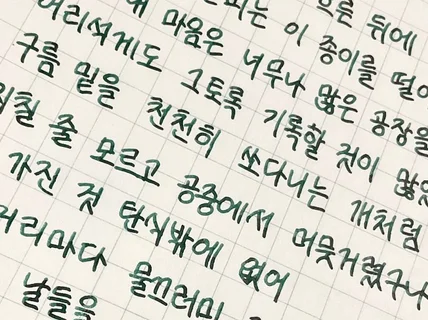 흐른 뒤에
피는 이 종이를 떨어
내 마음은 너무나 많은 공장을
어리석게도 그토록 기록할 것이 많았
구름 밑을 천천히 쏘다니는 개처럼
지칠 줄 모르고 공중에서 머뭇거렸구나
가진 것 탄식밖에 없어
거리마다 물끄러미
날들을